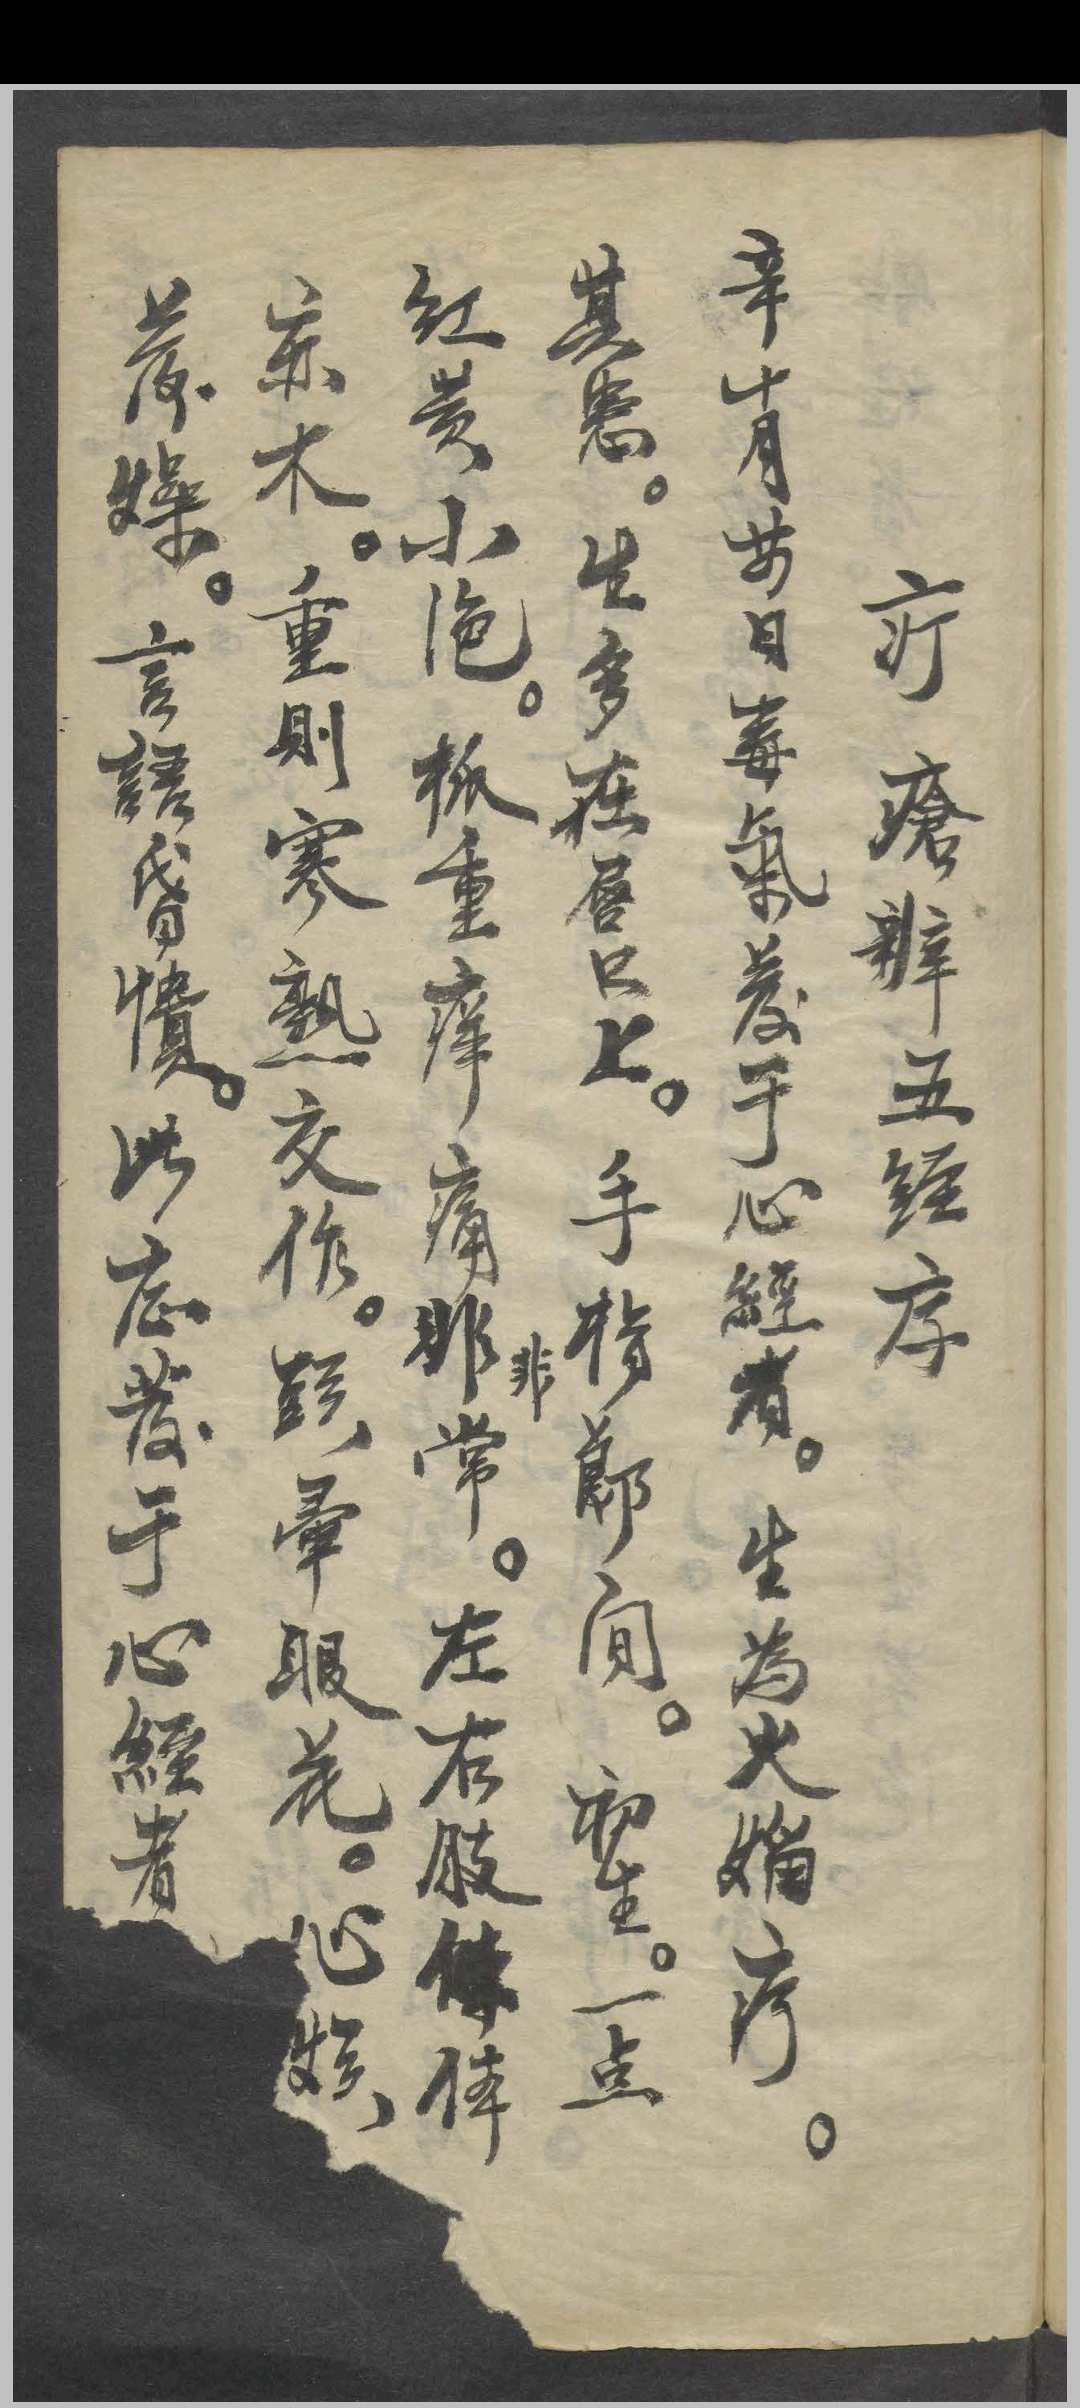 疔瘡辨五經序
辛十月廿日毒氣發于心經者。生為火㷔疔。
其患。生多在唇口上。手指節间。初生。一点
红黄小泡。抓重痒痛非常。左右肢体
非
麻木。重則寒熱交作。頭暈眼花。心煩
發燥。言語昏憒。此症發于心經者